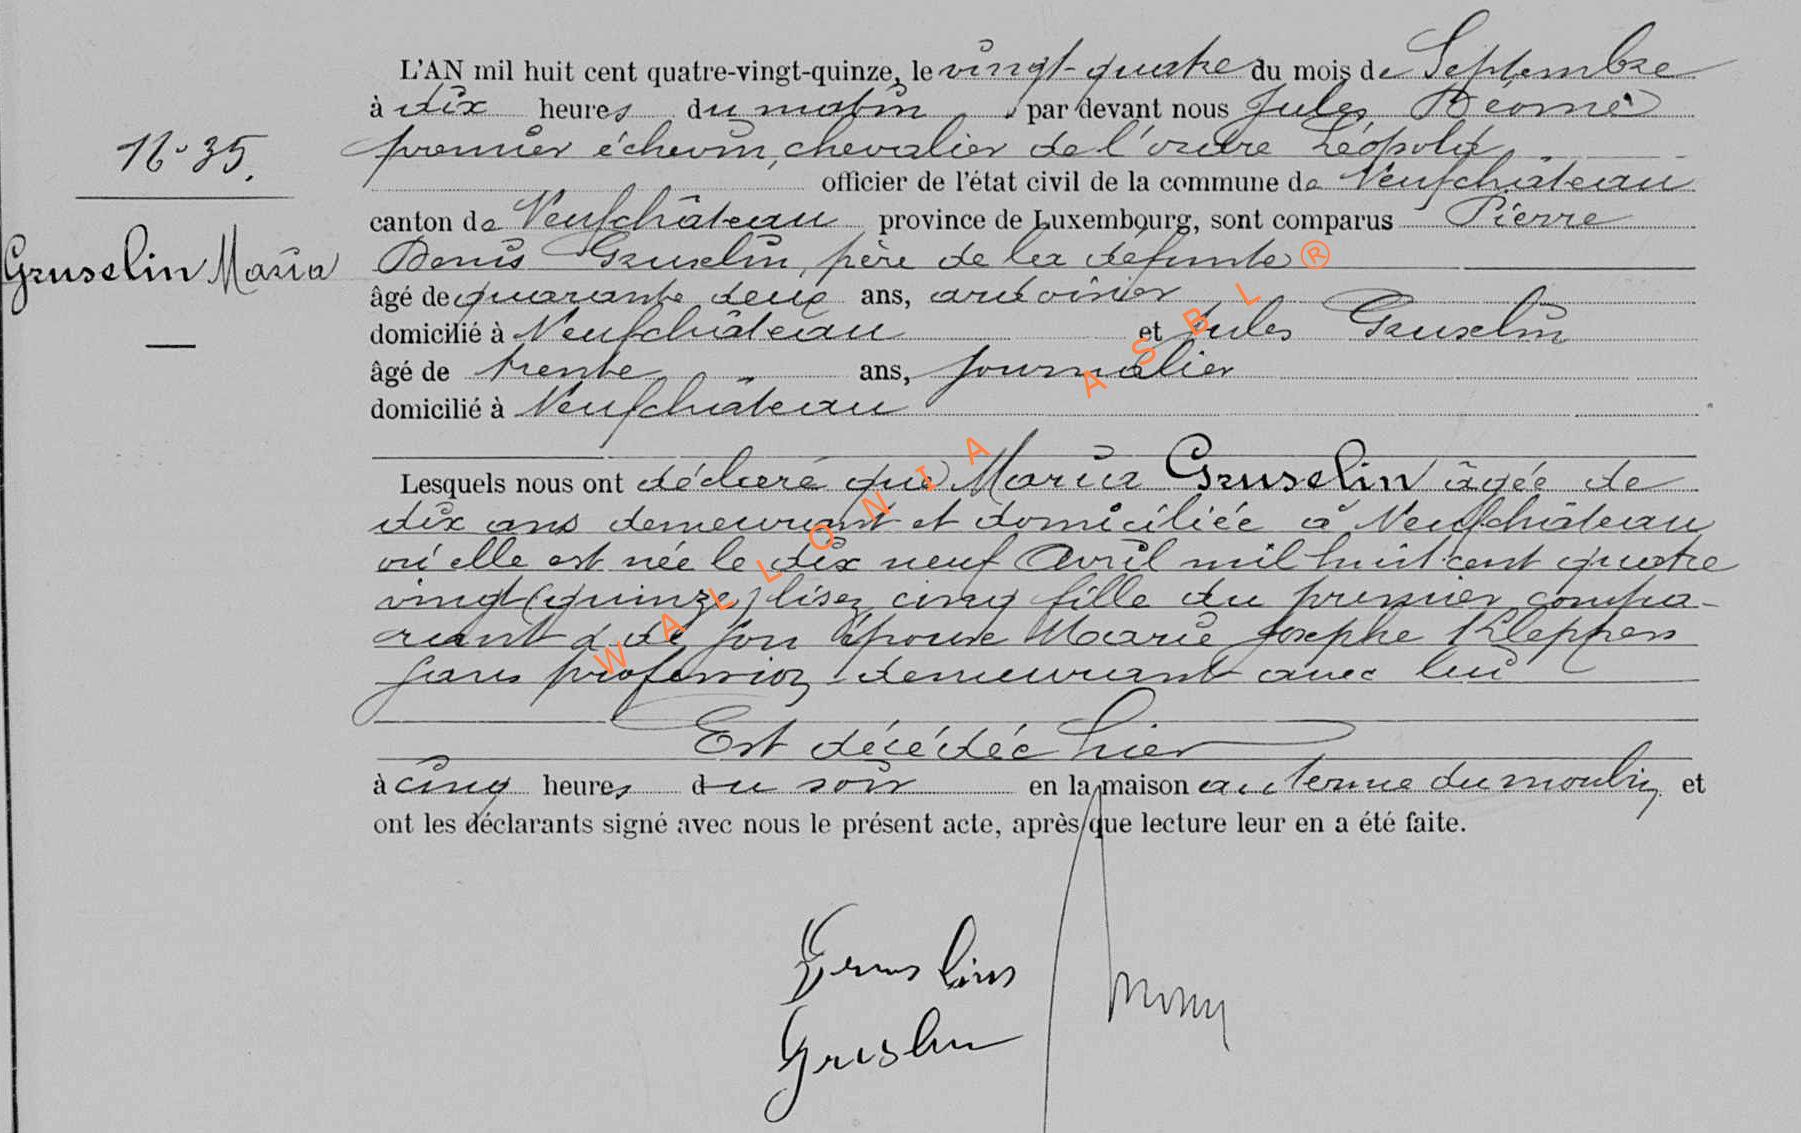 L'AN mil huit cent quatre-vingt-quinze, le vingt-quatre du mois de Septembre
à dix heures du matin par devant nous Jules
N° 35.
premier échevin, chevalier de l'ordre Léopold
officier de l'état civil de la commune de Neufchâteau
canton de Neufchâteau province de Luxembourg, sont comparus Pierre
Gruselin Maria
Denis Gruselin, père de la défunte
âgé de quarante deux ans, ardoisier
domicilié à Neufchâteau et Jules Gruselin
âgé de trente ans, journalier
domicilié à Neufchâteau
Lesquels nous ont déclaré que Maria Gruselin âgée de
dix ans demeurant et domiciliée à Neufchâteau
où elle est née le dix neuf Avril mil huit cent quatre
vingt (quinze) lisez cinq fille du premier compa-
rant & de son épouse Marie Josephe Kleppers
sans profession demeurant avec lui
Est décédée hier
à cinq heures du soir en la maison au terme du moulin et
ont les déclarants signé avec nous le présent acte, après que lecture leur en a été faite.
Gruslin
WALLONIA ASBL ®